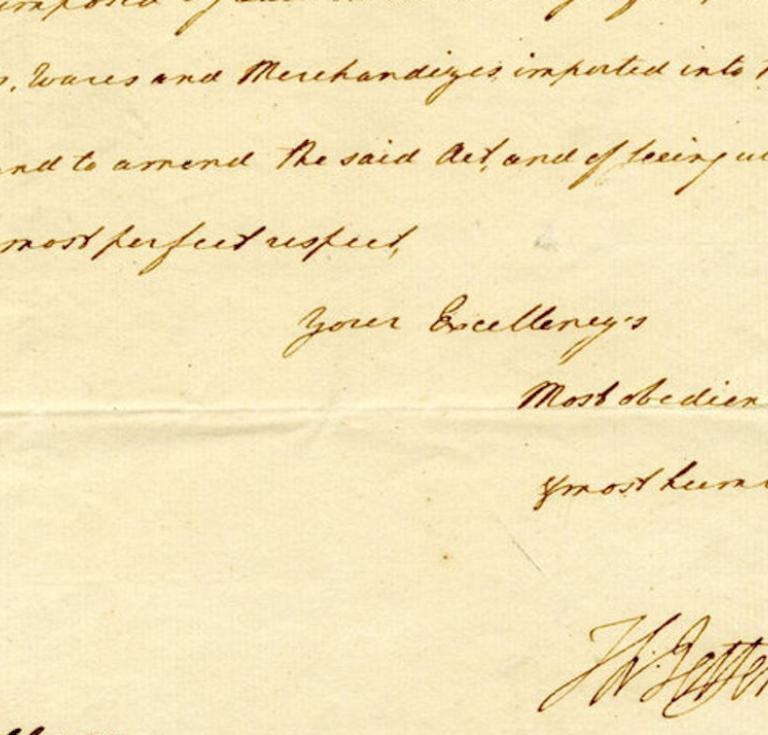 imposed
s, Wares and Merchandizes imported into
and to amend the said Act, and of being
most perfect respect,
Your Excellency's
Most obedien
& most hum
Th: Jeffer